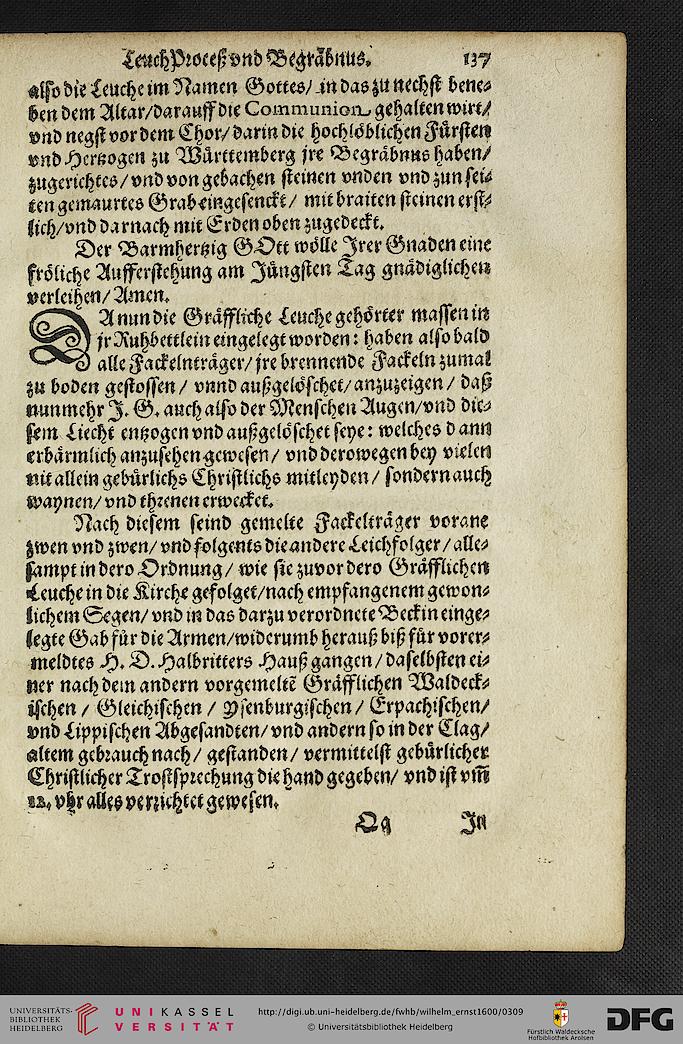 Leuch Proceß vnd Begräbnus. 137
also die Leuche im Namen Gottes/ in das zu nechst bene-
ben dem Altar/darauff die Communion gehalten wirt/
vnd negst vor dem Chor/ darin die hochlöblichen Fürsten
vnd Hertzogen zu Württemberg jre Begräbnus haben/
zugerichtes/ vnd von gebachen steinen vnden vnd zun sei-
ten gemaurtes Grab eingesenckt/ mit braiten steinen erst-
lich/vnd darnach mit Erden oben zugedeckt.
Der Barmhertzig GOtt wölle Jrer Gnaden eine
fröliche Aufferstehung am Jüngsten Tag gnädiglichen
verleihen/ Amen.
DA nun die Gräffliche Leuche gehörter massen in
jr Ruhbettlein eingelegt worden: haben also bald
alle Fackelnträger/ jre brennende Fackeln zumal
zu boden gestossen/ vnnd außgelöschet/ anzuzeigen/ daß
nunmehr J. G. auch also der Menschen Augen/vnd die-
sem Liecht entzogen vnd außgelöschet seye: welches dann
erbärmlich anzusehen gewesen/ vnd derowegen bey vielen
nit allein gebürlichs Christlichs mitleyden/ sondern auch
waynen/ vnd threnen erwecket.
Nach diesem seind gemelte Fackelträger vorane
zwen vnd zwen/ vnd folgents die andere Leichfolger/ alle-
sampt in dero Ordnung/ wie sie zuvor dero Gräfflichen
Leuche in die Kirche gefolget/nach empfangenem gewon-
lichem Segen/ vnd in das darzu verordnete Beckin einge-
legte Gab für die Armen/widerumb herauß biß für vorer-
meldtes H. D. Halbritters Hauß gangen/ daselbsten ei-
ner nach dem andern vorgemeltē Gräfflichen Waldeck-
ischen/ Gleichischen/ Ysenburgischen/ Erpachischen/
vnd Lippischen Abgesandten/ vnd andern so in der Clag/
altem gebrauch nach/ gestanden/ vermittelst gebürlicher
Christlicher Trostsprechung die hand gegeben/ vnd ist vm̄
12. vhr alles verrichtet gewesen.
Qq Jn
UNIVERSITÄTS-
BIBLIOTHEK
HEIDELBERG
UNIKASSEL
VERSITÄT
http://digi.ub.uni-heidelberg.de/fwhb/wilhelm_ernst1600/0309
© Universitätsbibliothek Heidelberg
Fürstlich Waldecksche
Hofbibliothek Arolsen
DFG